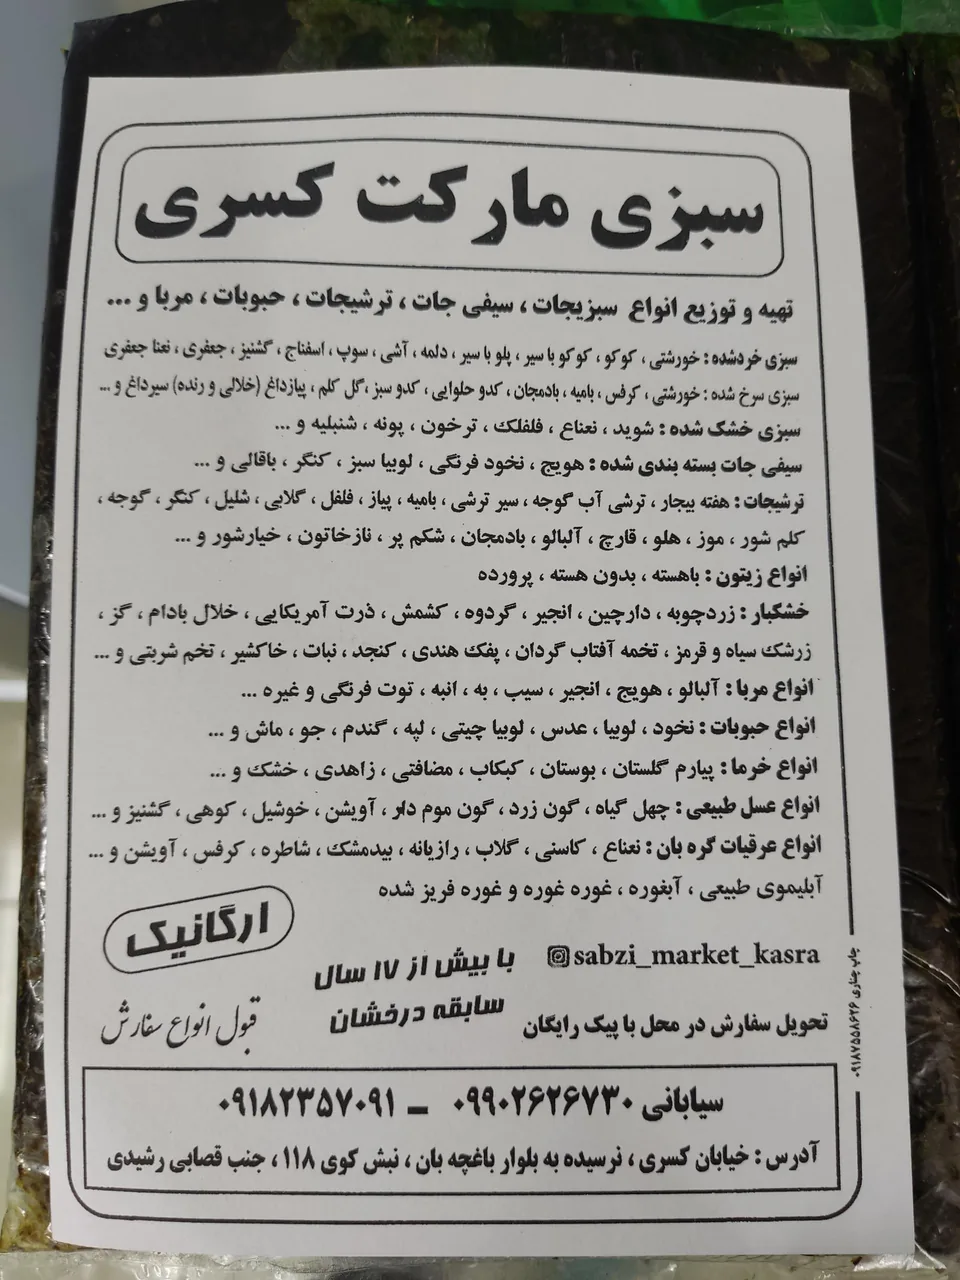 سبزی مارکت کسری
تهیه و توزیع انواع سبزیجات ، سیفی جات ، ترشیجات ، حبوبات ، مربا و ...
سبزی خردشده : خورشتی ، کوکو ، کوکو با سیر ، پلو با سیر ، دلمه ، آشی ، سوپ ، اسفناج ، گشنیز ، جعفری ، نعنا جعفری
سبزی سرخ شده : خورشتی ، کرفس ، بامیه ، بادمجان ، کدو حلوایی ، کدو سبز ،گل کلم ، پیازداغ (خلالی و رنده) سیرداغ و ...
سبزی خشک شده : شوید ، نعناع ، فلفلک ، ترخون ، پونه ، شنبلیه و ...
سیفی جات بسته بندی شده : هویج ، نخود فرنگی ، لوبیا سبز ، کنگر ، باقالی و ...
ترشیجات : هفته بیجار ، ترشی آب گوجه ، سیر ترشی ، بامیه ، پیاز ، فلفل ، گلابی ، شلیل ، کنگر ، گوجه ،
کلم شور ، موز ، هلو ، قارچ ، آلبالو ، بادمجان ، شکم پر ، نازخاتون ، خیارشور و ...
انواع زیتون : باهسته ، بدون هسته ، پرورده
خشکبار : زردچوبه ، دارچین ، انجیر ، گردوه ، کشمش ، ذرت آمریکایی ، خلال بادام ، گز ،
زرشک سیاه و قرمز ، تخمه آفتاب گردان ، پفک هندی ، کنجد ، نبات ، خاکشیر ، تخم شربتی و ...
انواع مربا : آلبالو ، هویج ، انجیر ، سیب ، به ، انبه ، توت فرنگی و غیره ...
انواع حبوبات : نخود ، لوبیا ، عدس ، لوبیا چیتی ، لپه ، گندم ، جو ، ماش و ...
انواع خرما : پیارم گلستان ، بوستان ، کبکاب ، مضافتی ، زاهدی ، خشک و ...
انواع عسل طبیعی : چهل گیاه ، گون زرد ، گون موم دار ، آویشن ، خوشیل ، کوهی ، گشنیز و ...
انواع عرقیات گره بان : نعناع ، کاسنی ، گلاب ، رازیانه ، بیدمشک ، شاطره ، کرفس ، آویشن و ...
آبلیموی طبیعی ، آبغوره ، غوره غوره و غوره فریز شده
ارگانیک
sabzi_market_kasra
با بیش از ۱۷ سال
سابقه درخشان
قبول انواع سفارش
تحویل سفارش در محل با پیک رایگان
چاپ چناری ۰۹۱۸۷۵۵۸۶۲۶
سیابانی ۰۹۹۰۲۶۲۶۷۳۰ ــ ۰۹۱۸۲۳۵۷۰۹۱
آدرس : خیابان کسری ، نرسیده به بلوار باغچه بان ، نبش کوی ۱۱۸ ، جنب قصابی رشیدی